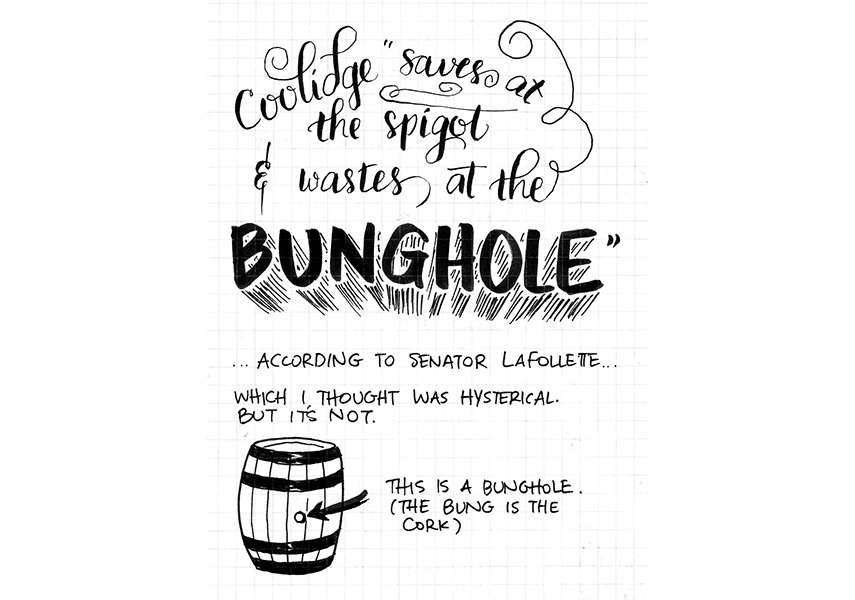 Coolidge "saves at
the spigot
& wastes at the
BUNGHOLE"
...ACCORDING TO SENATOR LAFOLLETTE...
WHICH I THOUGHT WAS HYSTERICAL.
BUT IT'S NOT.
THIS IS A BUNGHOLE.
(THE BUNG IS THE
CORK)